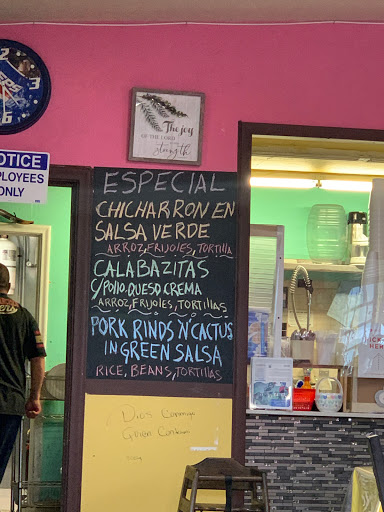 The joy
OF THE LORD
strength
NOTICE
EMPLOYEES
ONLY
ESPECIAL
CHICHARRON EN
SALSA VERDE
ARROZ, FRIJOLES, TORTILLA
CALABAZITAS
C/POLLO. QUESO CREMA
ARROZ, FRIJOLES, TORTILLAS
PORK RINDS 'N' CACTUS
IN GREEN SALSA
RICE, BEANS, TORTILLAS
Dios
Quien